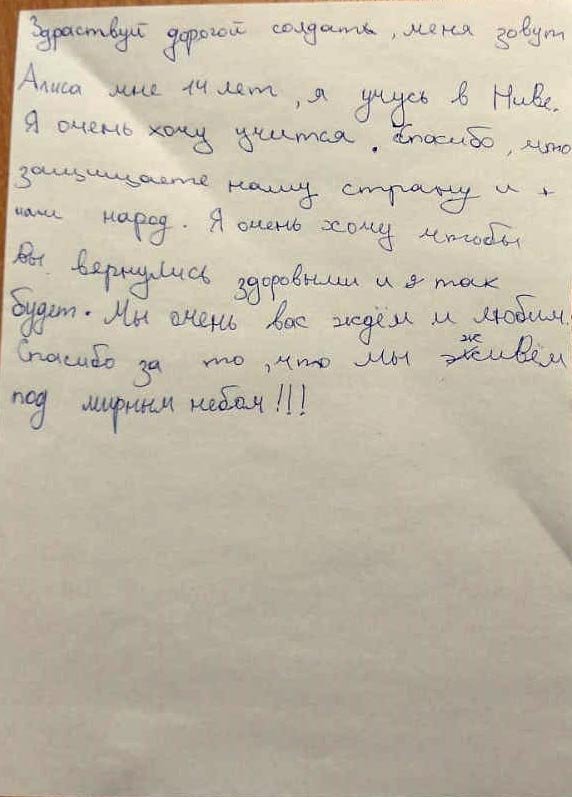 Здраствуй дорогой солдать, меня зовут
Алиса мне 14 лет, я учусь в Ниве.
Я очень хочу учится. Спасибо, что
защищаете нашу страну и +
наш народ. Я очень хочу чтобы
вы вернулись здоровыми и я так
будет. Мы очень вас ждём и любим.
Спасибо за то, что мы живём
под мирным небом!!!